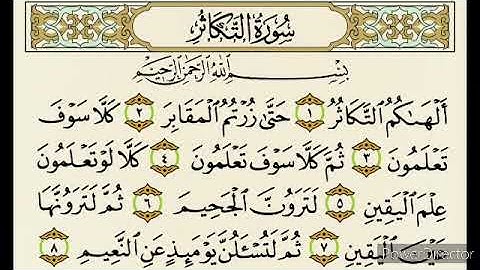 سُورَةُ التَّكَاثُرِ
بِسْمِ اللَّهِ الرَّحْمَٰنِ الرَّحِيمِ
أَلْهَىٰكُمُ ٱلتَّكَاثُرُ ١ حَتَّىٰ زُرْتُمُ ٱلْمَقَابِرَ ٢ كَلَّا سَوْفَ
تَعْلَمُونَ ٣ ثُمَّ كَلَّا سَوْفَ تَعْلَمُونَ ٤ كَلَّا لَوْ تَعْلَمُونَ
عِلْمَ ٱلْيَقِينِ ٥ لَتَرَوُنَّ ٱلْجَحِيمَ ٦ ثُمَّ لَتَرَوُنَّهَا
عَيْنَ ٱلْيَقِينِ ٧ ثُمَّ لَتُسْـَٔلُنَّ يَوْمَئِذٍ عَنِ ٱلنَّعِيمِ ٨
PowerDirector